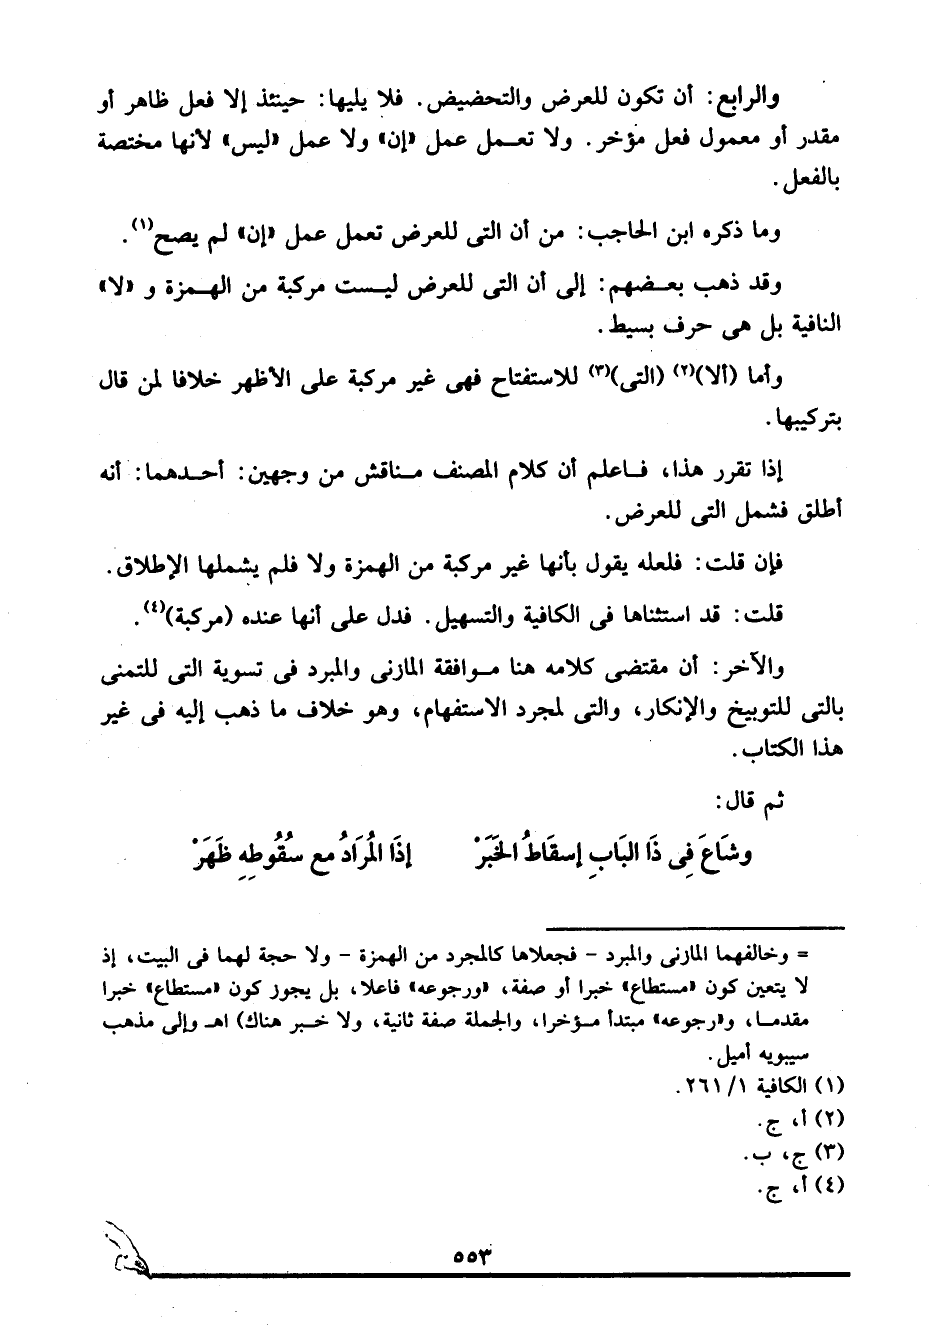 والرابع: أن تكون للعرض والتحضيض. فلا يليها: حينئذ إلا فعل ظاهر أو
مقدر أو معمول فعل مؤخر. ولا تعمل عمل «إن» ولا عمل «ليس» لأنها مختصة
بالفعل.
وما ذكره ابن الحاجب: من أن التى للعرض تعمل عمل «إن» لم يصح(١).
وقد ذهب بعضهم: إلى أن التى للعرض ليست مركبة من الهمزة و «لا»
النافية بل هى حرف بسيط.
وأما (ألا)(٢) (التى)(٣) للاستفتاح فهى غير مركبة على الأظهر خلافا لمن قال
بتركيبها.
إذا تقرر هذا، فاعلم أن كلام المصنف مناقش من وجهين: أحدهما: أنه
أطلق فشمل التى للعرض.
فإن قلت: فلعله يقول بأنها غير مركبة من الهمزة ولا فلم يشملها الإطلاق.
قلت: قد استثناها فى الكافية والتسهيل. فدل على أنها عنده (مركبة)(٤).
والآخر: أن مقتضى كلامه هنا موافقة المازنى والمبرد فى تسوية التى للتمنى
بالتى للتوبيخ والإنكار، والتى لمجرد الاستفهام، وهو خلاف ما ذهب إليه فى غير
هذا الكتاب.
ثم قال:
وشَاعَ فِى ذَا البَابِ إسقَاطُ الخَبَرْ إذَا المُرَادُ مع سُقُوطِهِ ظَهَرْ
= وخالفهما المازنى والمبرد - فجعلاها كالمجرد من الهمزة - ولا حجة لهما فى البيت، إذ
لا يتعين كون «مستطاع» خبرا أو صفة، «ورجوعه» فاعلا، بل يجوز كون «مستطاع» خبرا
مقدما، و«رجوعه» مبتدأ مؤخرا، والجملة صفة ثانية، ولا خبر هناك) اهـ وإلى مذهب
سيبويه أميل.
(١) الكافية ١/ ٢٦١.
(٢) أ، ج.
(٣) ج، ب.
(٤) أ، ج.
٥٥٣